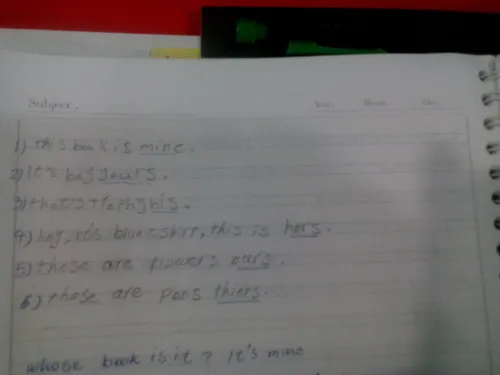 Subject.
1) this book is mine.
2) It's bag yours.
3) that's trophy his.
4) hey, it's blue t shirt, this is hers.
5) these are flowers ours.
6) those are pens thiers.
whose book is it ? It's mine